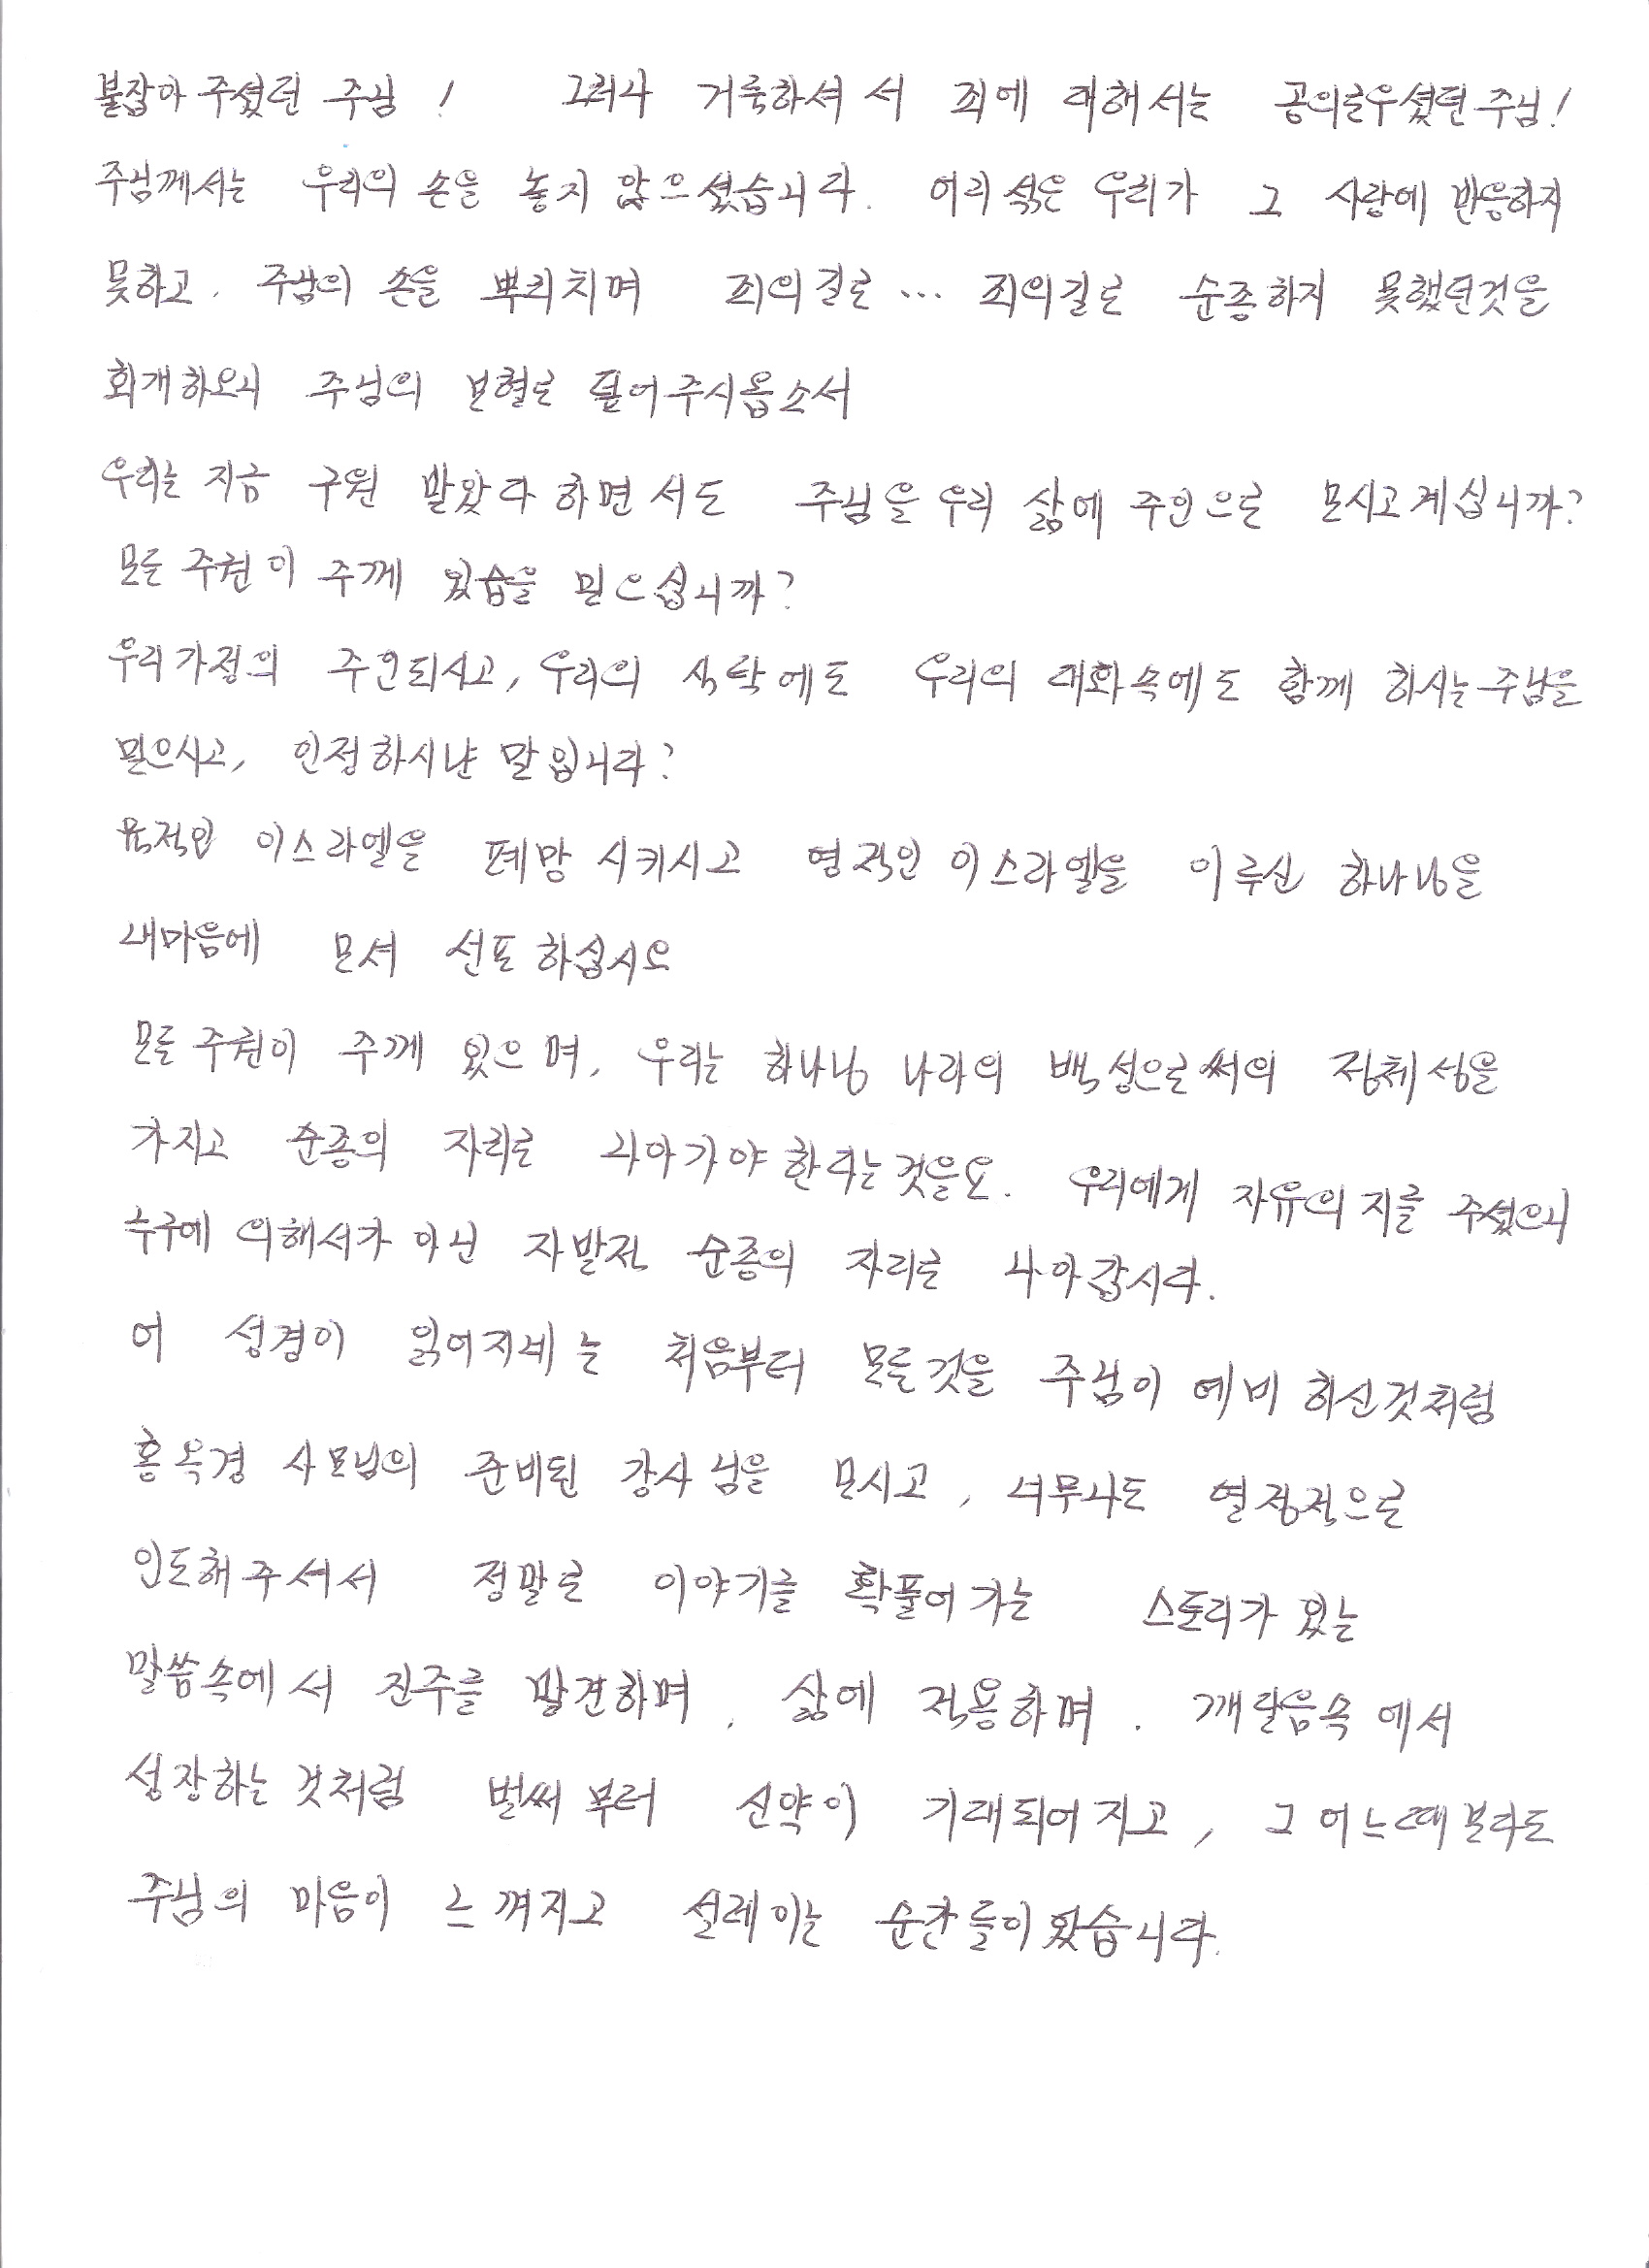 붙잡아 주셨던 주님! 그러나 거룩하셔서 죄에 대해서는 공의로우셨던주님!
주님께서는 우리의 손을 놓지 않으셨습니다. 어리석은 우리가 그 사랑에 반응하지
못하고, 주님의 손을 뿌리치며 죄의길로… 죄의길로 순종하지 못했던것을
회개하오니 주님의 보혈로 덮어주시옵소서
우리는 지금 구원 받았다 하면서도 주님을 우리 삶에 주인으로 모시고계십니까?
모든 주권이 주께 있습을 믿으십니까?
우리가정의 주인되시고, 우리의 식탁에도 우리의 대화속에도 함께 하시는주님을
믿으시고, 인정하시냔 말입니다?
육적인 이스라엘을 폐망 시키시고 영적인 이스라엘을 이루신 하나님을
내마음에 모셔 선포하십시오
모든 주권이 주께 있으며, 우리는 하나님 나라의 백성으로써의 정체성을
가지고 순종의 자리로 나아가야 한다는 것을요. 우리에게 자유의지를 주셨으니
누구에 의해서가 아닌 자발적 순종의 자리로 나아갑시다.
어 성경이 읽어지네는 처음부터 모든것을 주님이 예비 하신것처럼
홍옥경 사모님의 준비된 강사님을 모시고, 너무나도 열정적으로
인도해주셔서 정말로 이야기를 확풀어가는 스토리가 있는
말씀속에서 진주를 발견하며, 삶에 적용하며. 깨달음속에서
성장하는 것처럼 벌써부터 신약이 기대되어지고, 그어느때보다도
주님의 마음이 느껴지고 설레이는 순간들이었습니다.